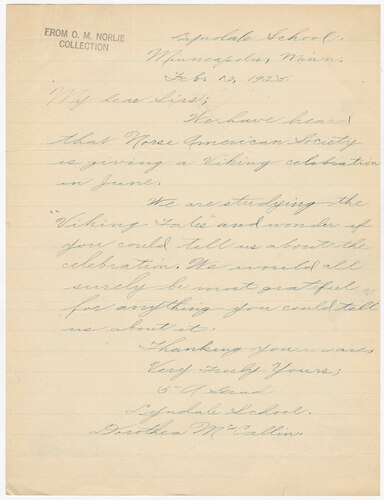 FROM O. M. NORLIE
COLLECTION
Lyndale School.
Minneapolis, Minn.
Feb. 12, 1925
My dear Sirs;
We have heard
that Norse American Society
is giving a Viking celebration
in June.
We are studying the
"Viking Tales" and wonder if
you could tell us about the
celebration. We would all
surely be most grateful
for anything you could tell
us about it.
Thanking you we are,
Very Truly Yours,
5-A Grad
Lyndale School.
Dorothea McCallin.